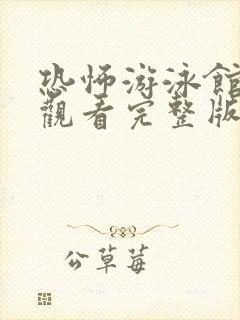 恐怖游泳館
觀看完整版
公草莓